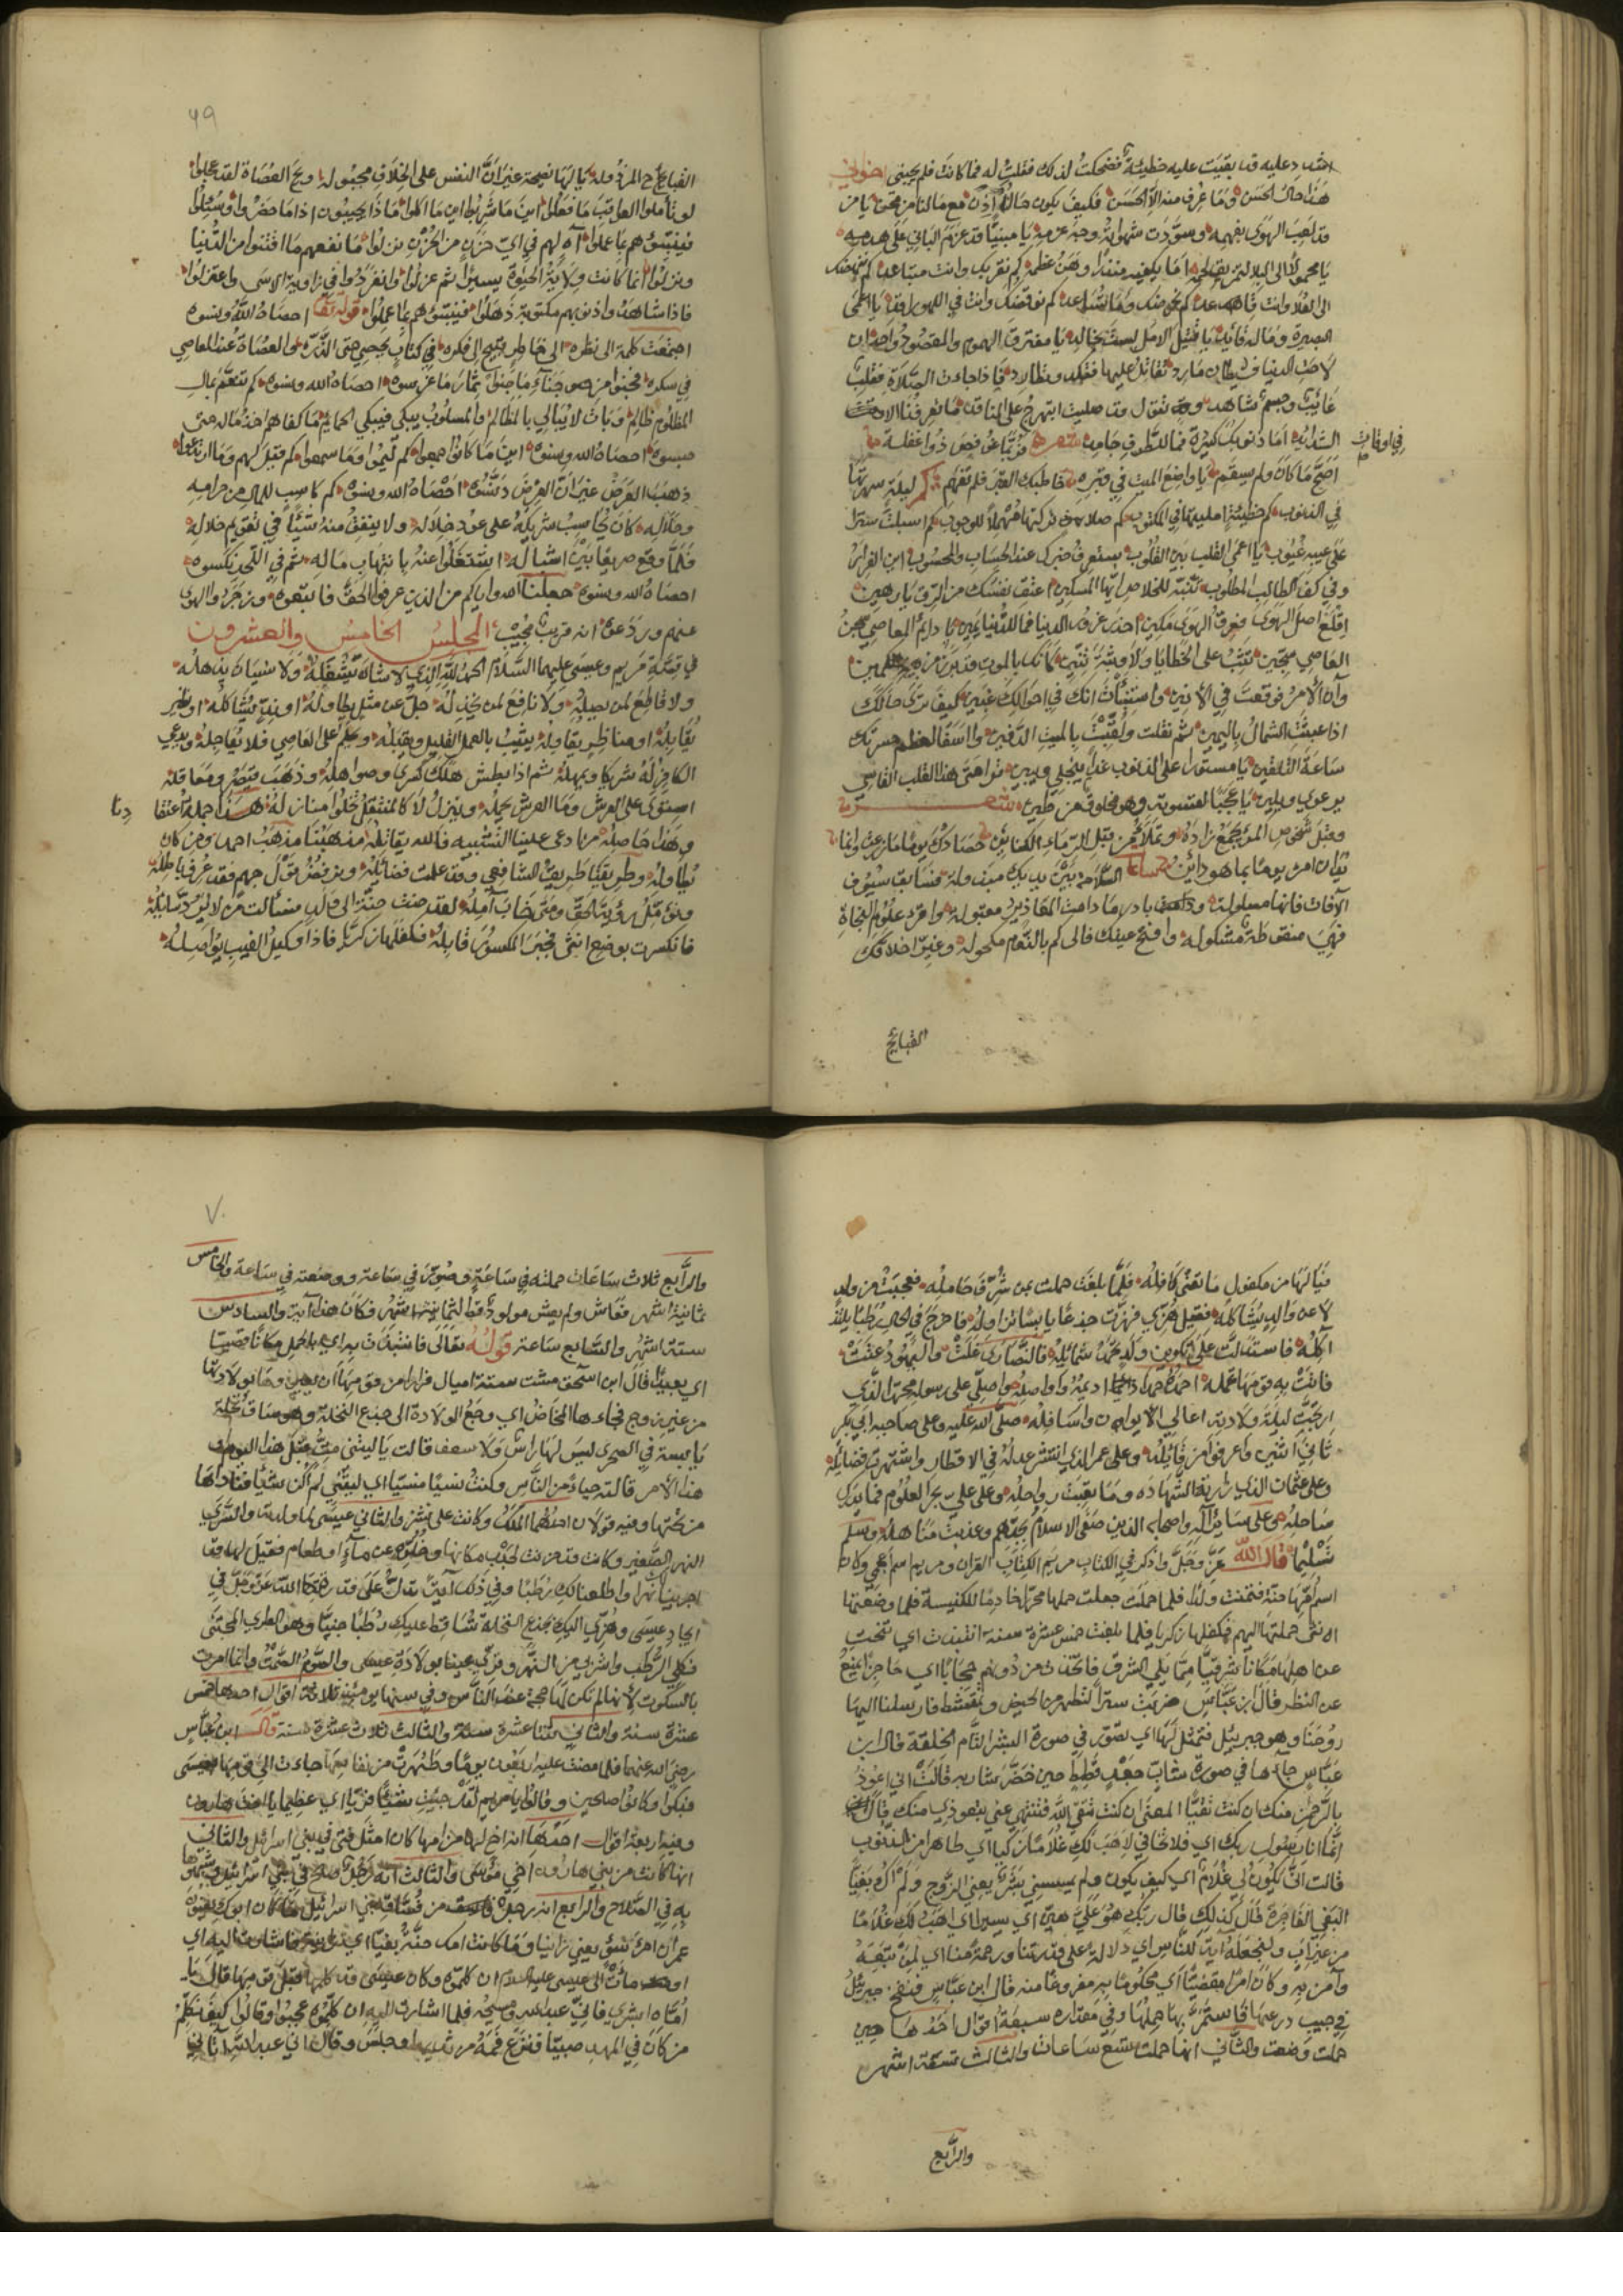 عليه قد بقيت عليه خطيئة فضحكت لذلك فقلت له فما كانت فلم يجبني اخواني
هذا حال الحسن وما عرف منه الا الحسن فكيف يكون حال مع مالنا من محن يا من
قد لعب الهوى بفهمه وسودت شهواته وجه عزمه يا مبنيا قد عزم الباني على هدمه
يا محمولا الى البلا لتمزيق لحمه اما يكفيه منذرا وهن عظمه كم نقربك وانت متباعد كم ننهضك
الى العلا وانت كم نحرضك وما تساعد كم نوقظك وانت في اللهو راقد يا اعمى
البصيرة وماله قائد يا قتيل الامل لست بخالد يا مفترق الهموم والمقصود واحد ان
لاحت الدنيا فشيطان مارد تقاتل عليها وتطارد فاذا جاءت الصلاة فقلب
غائب وجسم شاهد وتقول قد صليت ابتهرج على الناقد ما تعرفنا الا
في اوقات
الشدائد اما ذنوبك كثيرة فما للطرف جامد شعر فربما غوفص ذو غفلة
اصح ما كان ولم يسقم يا واضع الميت في قبره خاطبك القبر فلم تفهم كم ليلة سهرتها
في الذنوب كم خطيئة امليتها في المكتوب كم صلاة تركتها مهملا للوجوب كم اسبلت سترا
على عيوب يا اعمى القلب بين القلوب ستعرف خبرك عند الحساب والمحسوب اين الفرار
وفي كف الطالب المطلوب تنبه للخلاص ايها المسكين اعتق نفسك من الرق يا رهين
اقلع اصل الهوى فعرق الهوى مكين احذر غرور الدنيا فما للدنيا يمين يا دائم المعاصي سجن
العاصي سجين تثب على الخطايا ولا وثبة تنين كانك بالموت قد برز من كمين
وآن الامر فوقعت في الانين واستبنت انك في احوالك غبين كيف ترى حالك
اذا عبثت الشمال باليمين ثم نقلت ولقبت بالميت الدفين وا اسفا لعظم حسرتك
ساعة التلقين يا مستورا على الذنوب غدا ينجلي ويبين متى هذا القلب القاسي
يرعوي ويلين يا عجبا لقسوته وهو مخلوق من طين شعر
وقبل شخص المرء يجمع زاده وتملأ من قبل الرماء الكنائن حصادك يوما ما زرعت وانما
يدان امرؤ يوما بما هو دائن السلامة بين يديك مبذولة فسابق سيوف
الآفات فانها مسلولة بادر ما دامت المعاذير مقبولة واقرأ علوم النجاة
فهي منقوطة مشكولة وافتح عينك فالى كم بالنوم مكحولة وغير اخلاقك
القبائح
٦٩
القبائح المرذولة يا لها نصيحة غير ان النفس على الخلاف مجبولة ويح العصاة لقد عجلوا
لو تأملوا العواقب ما فعلوا اين ما شربوا اين ما اكلوا ماذا يجيبون اذا ما حضروا وسئلوا
فينبئهم بما عملوا آه لهم في اي حزن من الحزن نزلوا ما نفعهم ما اقتنوا من الدنيا
وبذلوا انما كانت ولاية الحيوة يسيرا ثم عزلوا وانفردوا في زاوية الاسى واعتزلوا
فاذا شاهدوا ذنوبهم مكتوبة ذهلوا فينبئهم بما عملوا قوله تعالى احصاه الله ونسوه
اجتمعت كلمة الى نظرة الى خاطر قبيح الى فكرة في كتاب يحصي حتى الذرة والعصاة عن المعاصي
في سكرة فجنوا من جنى ما جنوا ثمار ما غرسوه احصاه الله ونسوه كم تنعم بمال
المظلوم ظالم وبات لا يبالي بالمظالم والمسلوب يبكي فيبكي الحمائم ما كفاهم اخذ ماله حتى
حبسوه احصاه الله ونسوه اين ما كانوا جمعوا كم ليموا وما سمعوا كم قيل لهم وما ارتدعوا
ذهب العرض غير ان العرض دنسوه احصاه الله ونسوه كم كاسب للمال من حرامه
وحلاله كان يحاسب شريكه على عود خلاله ولا ينفق منه شيئا في تقويم خلاله
فلما وقع صريعا بين اشباله اشتغلوا عنه بانتهاب ماله ثم في اللحد نكسوه
احصاه الله ونسوه جعلنا الله واياكم من الذين عرفوا الحق فاتبعوه وزجروا الهوى
عنهم وردعوه انه قريب مجيب المجلس الخامس والعشرون
في قصة مريم وعيسى عليهما السلام الحمد لله الذي لا شأن يشغله ولا نسيان يذهله
ولا قاطع لمن يصله ولا نافع لمن يخذله جل عن مثل يطاوله او ند يشاكله او نظير
يقابله او مناظر يقاوله يثيب بالعمل القليل ويقبله ويحلم على العاصي فلا يعاجله ويدعي
الكافر له شريكا ويمهله ثم اذا بطش هلك كسرى وصواهله وذهب قيصر ومعاقله
استوى على العرش وما العرش يحمله وينزل لا كالمتنقل تخلوا منازله هذه جملة اعتقادنا
وهذا حاصله من ادعى علينا التشبيه فالله يقابله مذهبنا مذهب احمد ومن كان
يطاوله وطريقنا طريق الشافعي وقد علمت فضائله ونرفض قول جهم فقد عرف باطله
ونؤمل رؤية الحق ومتى خاب آمله لقد حنت حنة الى ولد فسالت من لا يرد سائله
فانكسرت بوضع انثى فجبر المكسور قابله فكفلها زكريا فاذا وكيل الغيب يواصله
فيا لها من مكفول ما تعنى كافله فلما بلغت حملت بمن شرف حامله فعجبت من ولد
لا عن والد يشاكله فقيل هزي فهزت جذعا يابسا تزاوله فاخرج في الحال رطبا يلتذ
آكله فاستدلت على تكوين ولد تحمد شمائله فالنصارى غلت واليهود عتت
فاتت به قومها تحمله احمده حمدا دائما اديمه واواصله واصلي على رسوله محمد الذي
ارتجت ليلة ولادته اعالي الايوان واسافله صلى الله عليه وعلى صاحبه ابي بكر
ثاني اثنين واعرفوا من قائله وعلى عمر الذي انتشر عدله في الاقطار واشتهرت فضائله
وعلى عثمان الذي زارته الشهادة وما بقيت رواحله وعلى علي بحر العلوم فما يدرك
ساحله وعلى سائر آله واصحابه الذين صفى الاسلام بجدهم وعذبت مناهله وسلم
تسليما قال الله عز وجل واذكر في الكتاب مريم الكتاب القرآن ومريم اسم اعجمي وكان
اسم امها حنة فتمنت ولدا فلما حملت جعلت حملها محررا خادما للكنيسة فلما وضعتها
انثى حملتها اليهم فكفلها زكريا فلما بلغت خمس عشرة سنة انتبذت اي تنحت
عن اهلها مكانا شرقيا مما يلي الشرق فاتخذت من دونهم حجابا اي حاجزا يمنع
عن النظر قال ابن عباس ضربت سترا لتطهر من الحيض وتمتشط فارسلنا اليها
روحنا وهو جبريل فتمثل لها اي تصور في صورة البشر التام الخلقة قال ابن
عباس جاءها في صورة شاب جعد قطط حين خضر شاربه قالت اني اعوذ
بالرحمن منك ان كنت تقيا المعنى ان كنت تتقي الله فتنتهي عني بتعوذي منك قال
انما انا رسول ربك اي فلا تخافي لاهب لك غلاما زكيا اي طاهرا من الذنوب
قالت انى يكون لي غلام اي كيف يكون ولم يمسسني بشر يعني الزوج ولم اك بغيا
البغي الفاجرة قال كذلك قال ربك هو علي هين اي يسير اي اهب لك غلاما
من غير اب ولنجعله آية للناس اي دلالة على قدرتنا ورحمة منا اي لمن تبعه
وآمن به وكان امرا مقضيا اي محكوما به مفروغا منه قال ابن عباس فنفخ جبريل
في جيب درعها فاستمر بها حملها وفي مقداره سبعة اقوال احدها حين
حملت وضعت والثاني انها حملت تسع ساعات والثالث تسعة اشهر
والرابع
٧٠
والرابع ثلاث ساعات حملته في ساعة وصور في ساعة ووضعته في ساعة والخامس
ثمانية اشهر فعاش ولم يعش مولود قط لثمانية اشهر فكان هذا آية والسادس
ستة اشهر والسابع ساعة قوله تعالى فانتبذت به اي بالحمل مكانا قصيا
اي بعيدا قال ابن اسحق مشت ستة اميال فرارا من قومها ان يعيروها بولادتها
من غير زوج فجاءها المخاض اي وجع الولادة الى جذع النخلة وهو ساق نخلة
يابسة في الصحرى ليس لها راس ولا سعف قالت يا ليتني مت قبل هذا اليوم او
هذا الامر قالته حياء من الناس وكنت نسيا منسيا اي ليتني لم اكن شيئا فناداها
من تحتها وفيه قولان احدهما الملك وكانت على نشز والثاني عيسى لما ولدته والسري
النهر الصغير وكانت قد حزنت لجدب مكانها وخلوه عن ماء او طعام فقيل لها قد
اجرينا لك نهرا واطلعنا لك رطبا وفي ذلك آية تدل على قدرة الله عز وجل في
ايجاد عيسى وهزي اليك بجذع النخلة تساقط عليك رطبا جنيا وهو الطري المجتنى
فكلي الرطب واشربي من النهر وقري عينا بولادة عيسى والصوم الصمت وانما امرت
بالسكوت لانها لم تكن لها حجة عند الناس وفي سنها يومئذ ثلاثة اقوال احدها خمس
عشرة سنة والثاني اثنتا عشرة سنة والثالث ثلاث عشرة سنة قال ابن عباس
رضي الله عنهما فلما مضت عليه اربعون يوما وطهرت من نفاسها جاءت الى قومها بعيسى
فبكوا وكانوا صالحين وقالوا يا مريم لقد جئت شيئا فريا اي عظيما يا اخت هارون
وفيه اربعة اقوال احدها انه اخ لها من امها كان امثل فتى في بني اسرائيل والثاني
انها كانت من بني هارون اخي موسى والثالث انه رجل صالح في بني اسرائيل وشبهوها
به في الصلاح والرابع انه رجل من فساق بني اسرائيل ما كان ابوك
عمران امرأ سوء يعني زانيا وما كانت امك حنة بغيا اي زانية فاشارت اليه اي
اومأت الى عيسى عليه السلام ان كلموه وكان عيسى قد كلمها قبل قومها قال يا
اماه ابشري فاني عبد الله ومسيحه فلما اشارت اليه ان كلموه عجبوا وقالوا كيف نكلم
من كان في المهد صبيا فنزع فمه من ثديها وجلس وقال اني عبد الله آتاني